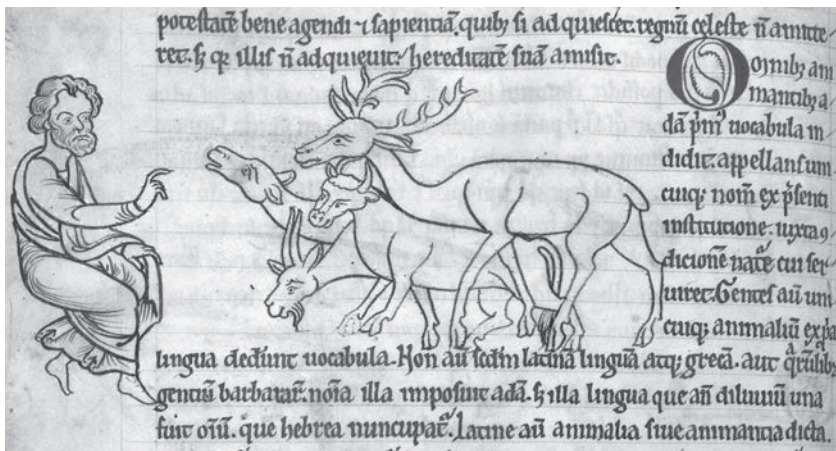 potestatē bene agendi ⁊ sapientiā. quibꝫ si ad quiescēt. regnū celeste n̄ amitte
ret. ꝫ qr̄ illis n̄ adquieuit. hereditatē suā amisit.
Om̄ibꝫ ani
mantibꝫ a
dā p̄mꝰ uocabula in
didit. appellans uni
cuiqꝫ nom̄ ex p̄senti
institucione. iuxta ꝯ
dicionē nat͛e cui ser
uiret. Gentes aū uni
cuiqꝫ animaliū ex ꝓpa
lingua dedr̄unt uocabula. Non aū scd̄m latinā linguā atqꝫ grecā. aut q̄rūlibꝫ
gentiū barbarar̄. nōia illa imposuit adā. ꝫ illa lingua que an̄ diluuiū una
fuit oīū. que hebrea nuncupat᷑. Latine aū animalia siue animantia dicta.